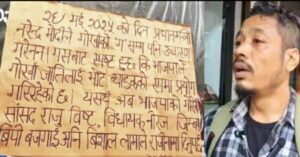 २८ मई २०२५ को दिन प्रधानमन्त्री
नरेन्द्र मोदीले गोर्खाको सम्म पनि उच्चारण
गरेनन्। यसबाट स्पष्ट हुन्छ कि भाजपाले
गोर्खा जातिलाई भोट मात्र प्रयोग
गरिरहेको छ। यसर्थ अब भाजपाको गोर्खा
सांसद राजु विष्ट विधायक नीरज जिम्बा
बिपी बजगाईं अनि बिशाल लामाले राजीनामा